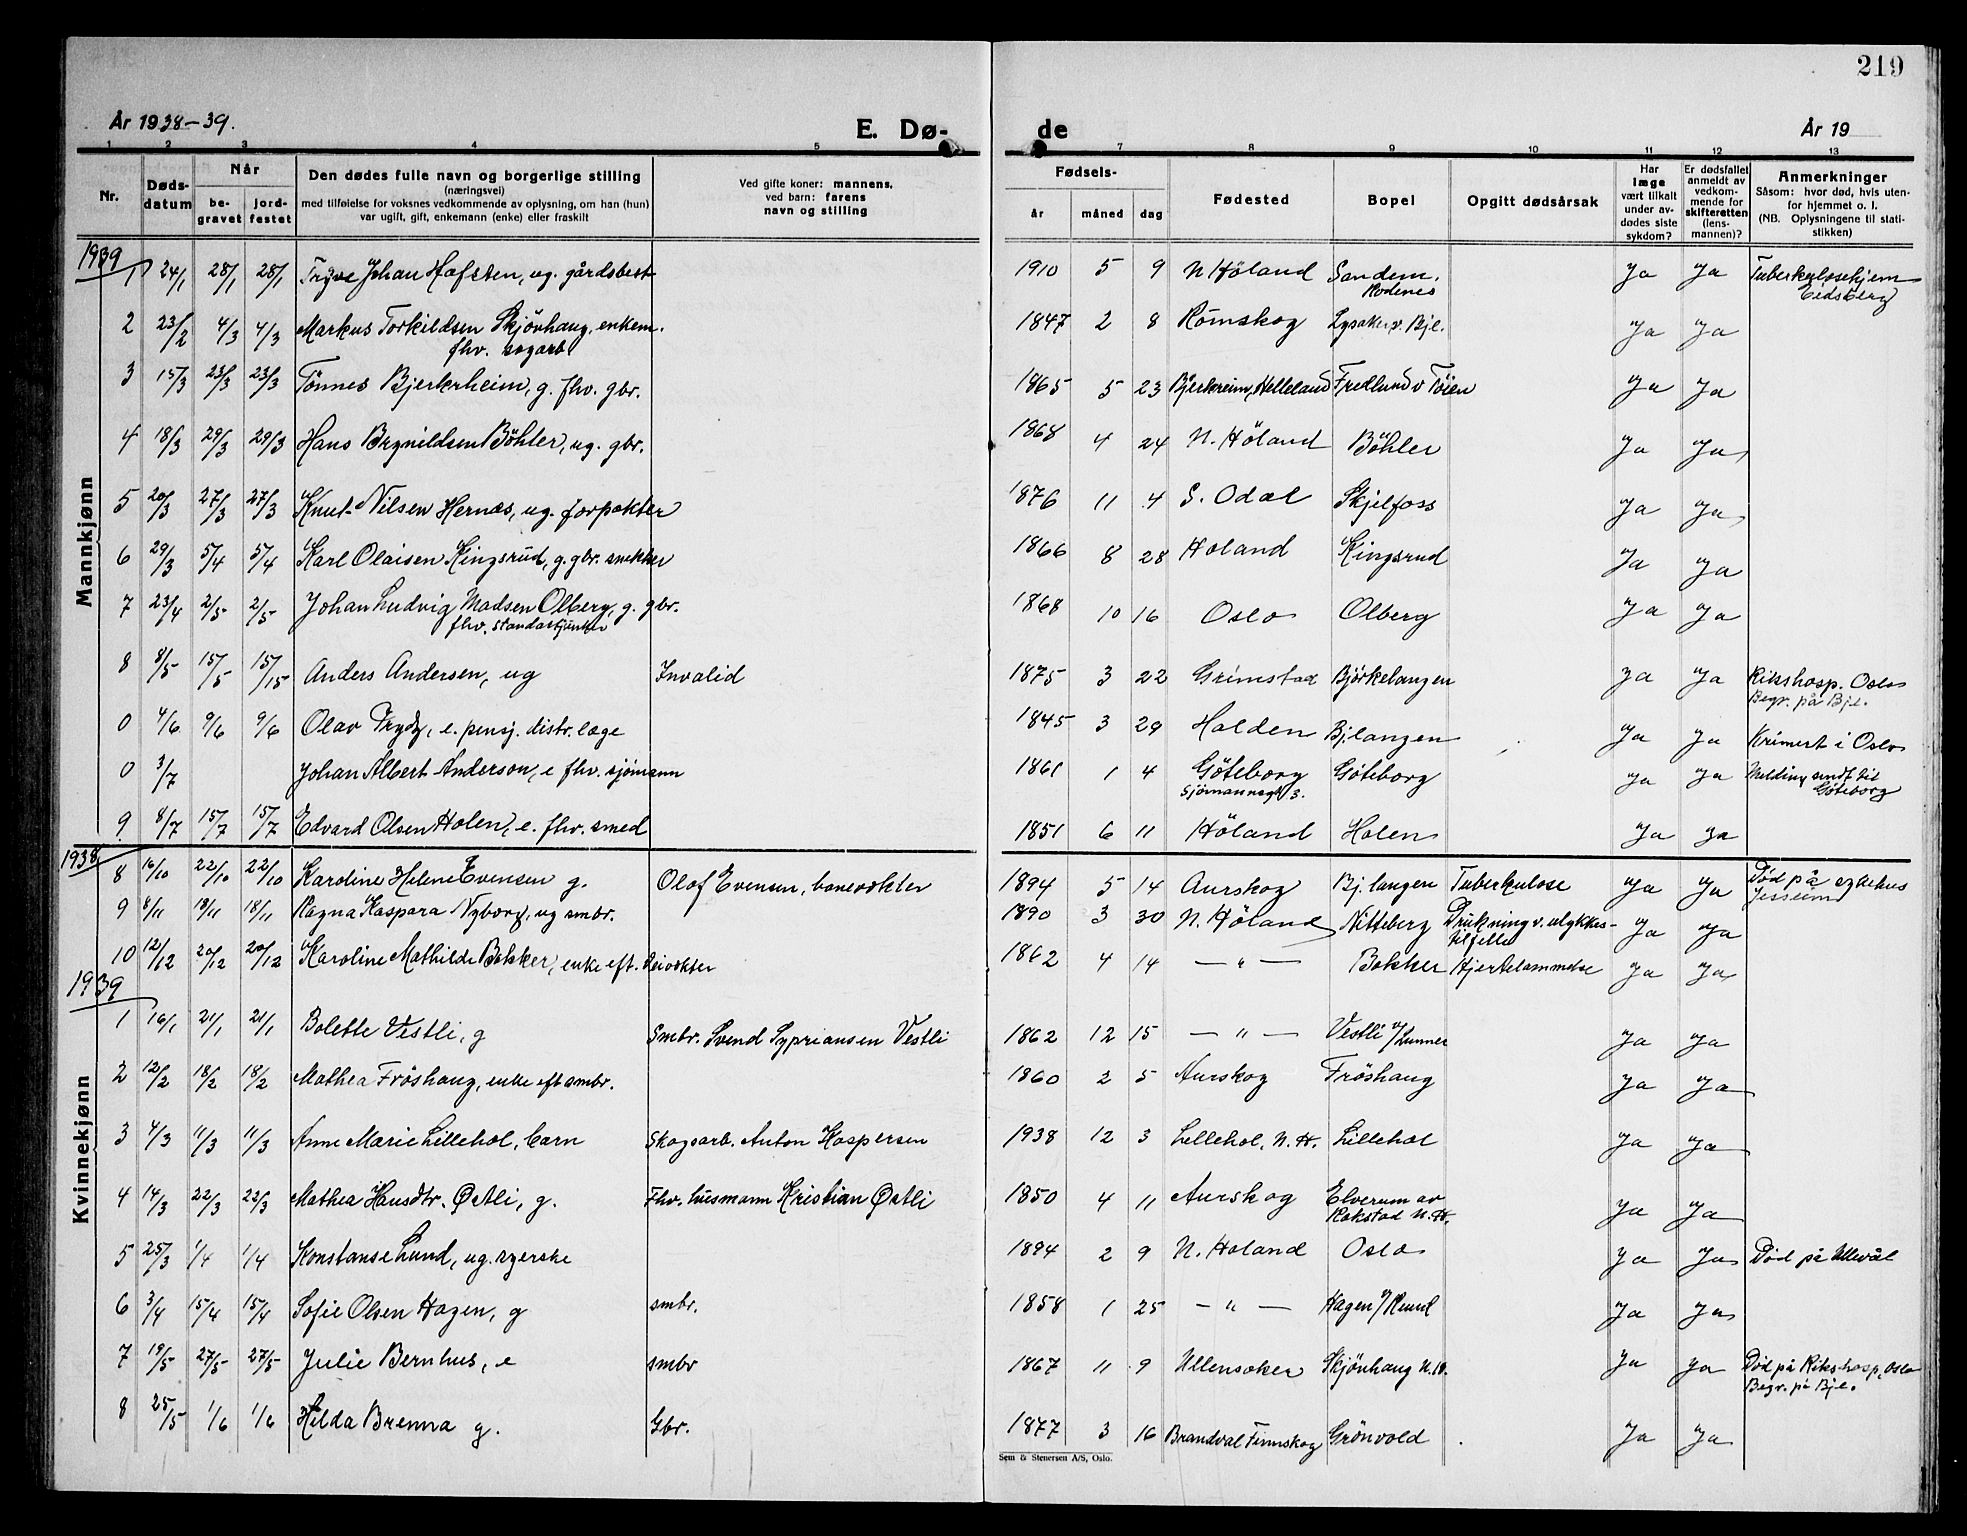 219
År 1938-39.
E. Dø-
de
År 19
1 2 3 4 5 7 8 9 10 11 12 13
Nr.
Døds-
datum
Når
be-
gravet
jord-
festet
Den dødes fulle navn og borgerlige stilling
(næringsvei)
med tilføielse for voksnes vedkommende av oplysning, om han (hun)
var ugift, gift, enkemann (enke) eller fraskilt
Ved gifte koner: mannens,
ved barn: farens
navn og stilling
Fødsels-
år måned dag
Fødested
Bopel
Opgitt dødsårsak
Har
læge
vært tilkalt
under av-
dødes siste
sykdom?
Er dødsfallet
anmeldt av
vedkom-
mende for
skifteretten
(lens-
mannen)?
Anmerkninger
Såsom: hvor død, hvis uten-
for hjemmet o. l.
(NB. Oplysningene til stati-
stikken)
Mannkjønn
1939
1 24/1 28/1 28/1 Trýve Johan Hafsten, ug. gårdsbest 1910 5 9 N Höland Sandem, Ja Ja Tuberkulosehjem
Rodenes Eidsberg
2 23/2 4/3 4/3 Markus Torkildsen Skjönhaug, enkem. 1847 2 8 Römskog Lysaker v. Bjl. Ja Ja
fhv. sagarb
3 15/3 23/3 23/3 Tönnes Bjerkrheim, g. fhv. gbr. 1865 5 23 Bjerkreim, Helleland Fredlund v Töien Ja Ja
4 18/3 29/3 29/3 Hans Brynildsen Böhler, ug. gbr. 1868 4 24 N. Höland Böhler Ja Ja
5 20/3 27/3 27/3 Knut Nilsen Hernæs, ug. forpakter 1876 11 4 S. Odal Skjelfoss Ja Ja
6 29/3 5/4 5/4 Karl Olaisen Kingsrud, g. gbr. snekker 1866 8 28 Holand Kingsrud Ja Ja
7 23/4 2/5 2/5 Johan Ludvig Madsen Olberg, g. gbr. 1868 10 16 Oslo Olberg Ja Ja
fhv. standartjunker
8 8/5 15/5 15/15 Anders Andersen, ug Invalid 1875 3 22 Grimstad Björkelangen Ja Ja Rikshosp. Oslo
Begr. på Bjl.
0 4/6 9/6 9/6 Olav Trydz, e. pensj. distr. læge 1845 3 29 Halden Bj.langen Ja Ja Krimert i Oslo
0 3/7 Johan Albert Anderson, e fhv. sjömann 1861 1 4 Göteborg Göteborg Ja Ja Melding sendt til
Sjömannsgt 3. Göteborg
9 8/7 15/7 15/7 Edvard Olsen Holen, e. fhv. smed 1851 6 11 Höland Holen Ja Ja
Kvinnekjønn
1938
8 16/10 22/10 22/10 Karoline Helene Evensen g. Olaf Evensen, banevokter 1894 5 14 Aurskog Bj. langen Tuberkulose Ja Ja Död på sykehus
Jessheim
9 8/11 18/11 18/11 Ragna Kaspara Nyborg, ug smbr. 1890 3 30 N. Höland Nitteberg Drukning v. ulykkes-
tilfelle Ja Ja
10 12/12 20/12 20/12 Karoline Mathilde Bakker, enke eft. veivokter 1862 4 14 — " — Bakker Hjertelammelse Ja Ja
1939
1 16/1 21/1 21/1 Bolette Vestli, g Smbr. Svend Sypriansen Vestli 1862 12 15 — " — Vestli u/Lunner Ja Ja
2 12/2 18/2 18/2 Mathea Fröshaug, enke eft smbr. 1860 2 5 Aurskog Fröshaug Ja Ja
3 4/3 11/3 11/3 Anne Marie Lillehol, barn Skogsarb. Anton Kaspersen 1938 12 3 Lillehol, N. H. Lillehol Ja Ja
4 14/3 22/3 22/3 Mathea Hansdtr. Østli, g. Fhv. husmann Kristian Østli 1850 4 11 Aurskog Elverum av Ja Ja
Rakstad N. H.
5 25/3 1/4 1/4 Konstanse Lund, ug. syerske 1894 2 9 N. Holand Oslo Ja Ja Död på Ullevål
6 3/4 15/4 15/4 Sofie Olsen Hagen, g smbr. 1858 1 25 — " — Hagen u/Rund Ja Ja
7 19/5 27/5 27/5 Julie Bernhus, e smbr 1867 11 9 Ullensaker Skjönhaug N. H. Ja Ja Död på Rikshosp, Oslo
Begr. på Bjl.
8 25/5 1/6 1/6 Hilda Brenna g. Gbr. 1877 3 16 Brandval Finnskog Grönvold Ja Ja
Sem & Stenersen A/S, Oslo.